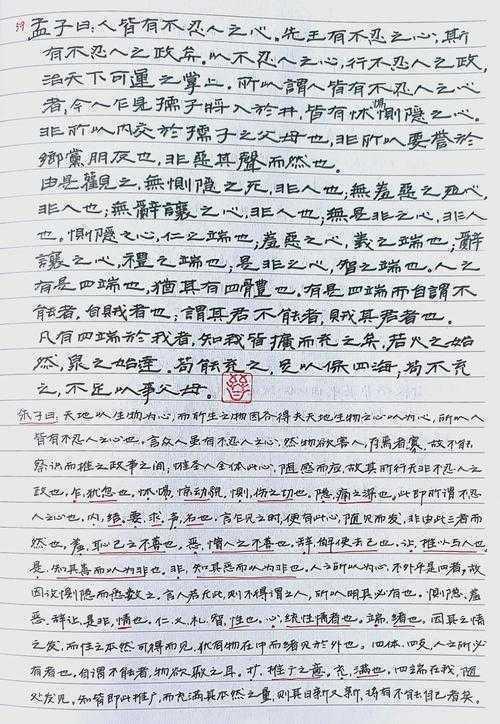 39 孟子曰:人皆有不忍人之心。先王有不忍之心,斯
有不忍人之政矣。以不忍人之心,行不忍人之政,
治天下可運之掌上。所以謂人皆有不忍人之心
者,今人乍見孺子將入於井,皆有怵惕惻隱之心。
非所以内交於孺子之父母也,非所以要譽於
鄉黨朋友也,非惡其聲而然也。
由是觀之,無惻隱之心,非人也;無羞惡之心,
非人也;無辭讓之心,非人也;無是非之心,非人
也。惻隱之心,仁之端也;羞惡之心,義之端也;辭
讓之心,禮之端也;是非之心,智之端也。人之
有是四端也,猶其有四體也。有是四端而自謂不
能者,自賊者也;謂其君不能者,賊其君者也。
凡有四端於我者,知我皆擴而充之矣,若火之始
然,泉之始達。苟能充之,足以保四海;苟不充
之,不足以事父母。
朱子曰:天地以生物为心,而所生之物因各得夫天地生物之心以为心,所以人
皆有不忍人之心也。言众人虽有不忍人之心,然物欲害人,存焉者寡,故不能
察识而推之政事之间,惟圣人全体此心,随感而应,故其所行无非不忍人之
政也。乍,犹忽也。怵惕,惊动貌。恻,伤之切也。隐,痛之深也。此即所谓不忍
人之心也。内,结。要,求。声,名也。言乍见之时,便有此心,随见而发,非由此三者而
然也。羞,耻己之不善也。恶,憎人之不善也。辞,解使去己也。让,推以与人也。
是,知其善而以为非也。非,知其恶而以为非也。人之所以为心,不外乎是四者,故
因论恻隐而悉数之。言人若无此,则不得谓之人,所以明其必有也。恻隐、羞
恶、辞让、是非,情也。仁、义、礼、智,性也。心,统性情者也。端,绪也。因其之情
之发,而性之本然可得而见,犹有物在中而绪见於外也。四体,四支,人之所必
有者也。自谓不能者,物欲蔽之耳。扩,推广之意。充,满也。四端在我,随
处发见,知皆即此推广,而充满其本然之量,则其日新又新,将有不能自己者矣。